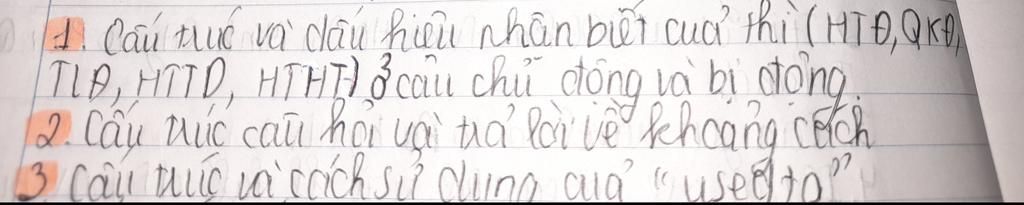 1. Cấu trúc và dấu hiệu nhận biết của thì (HTĐ, QKĐ,
TLĐ, HTTD, HTHT) ở câu chủ động và bị động.
2. Cấu trúc câu hỏi và trả lời về khoảng cách
3. Cấu trúc và cách sử dụng của "used to"